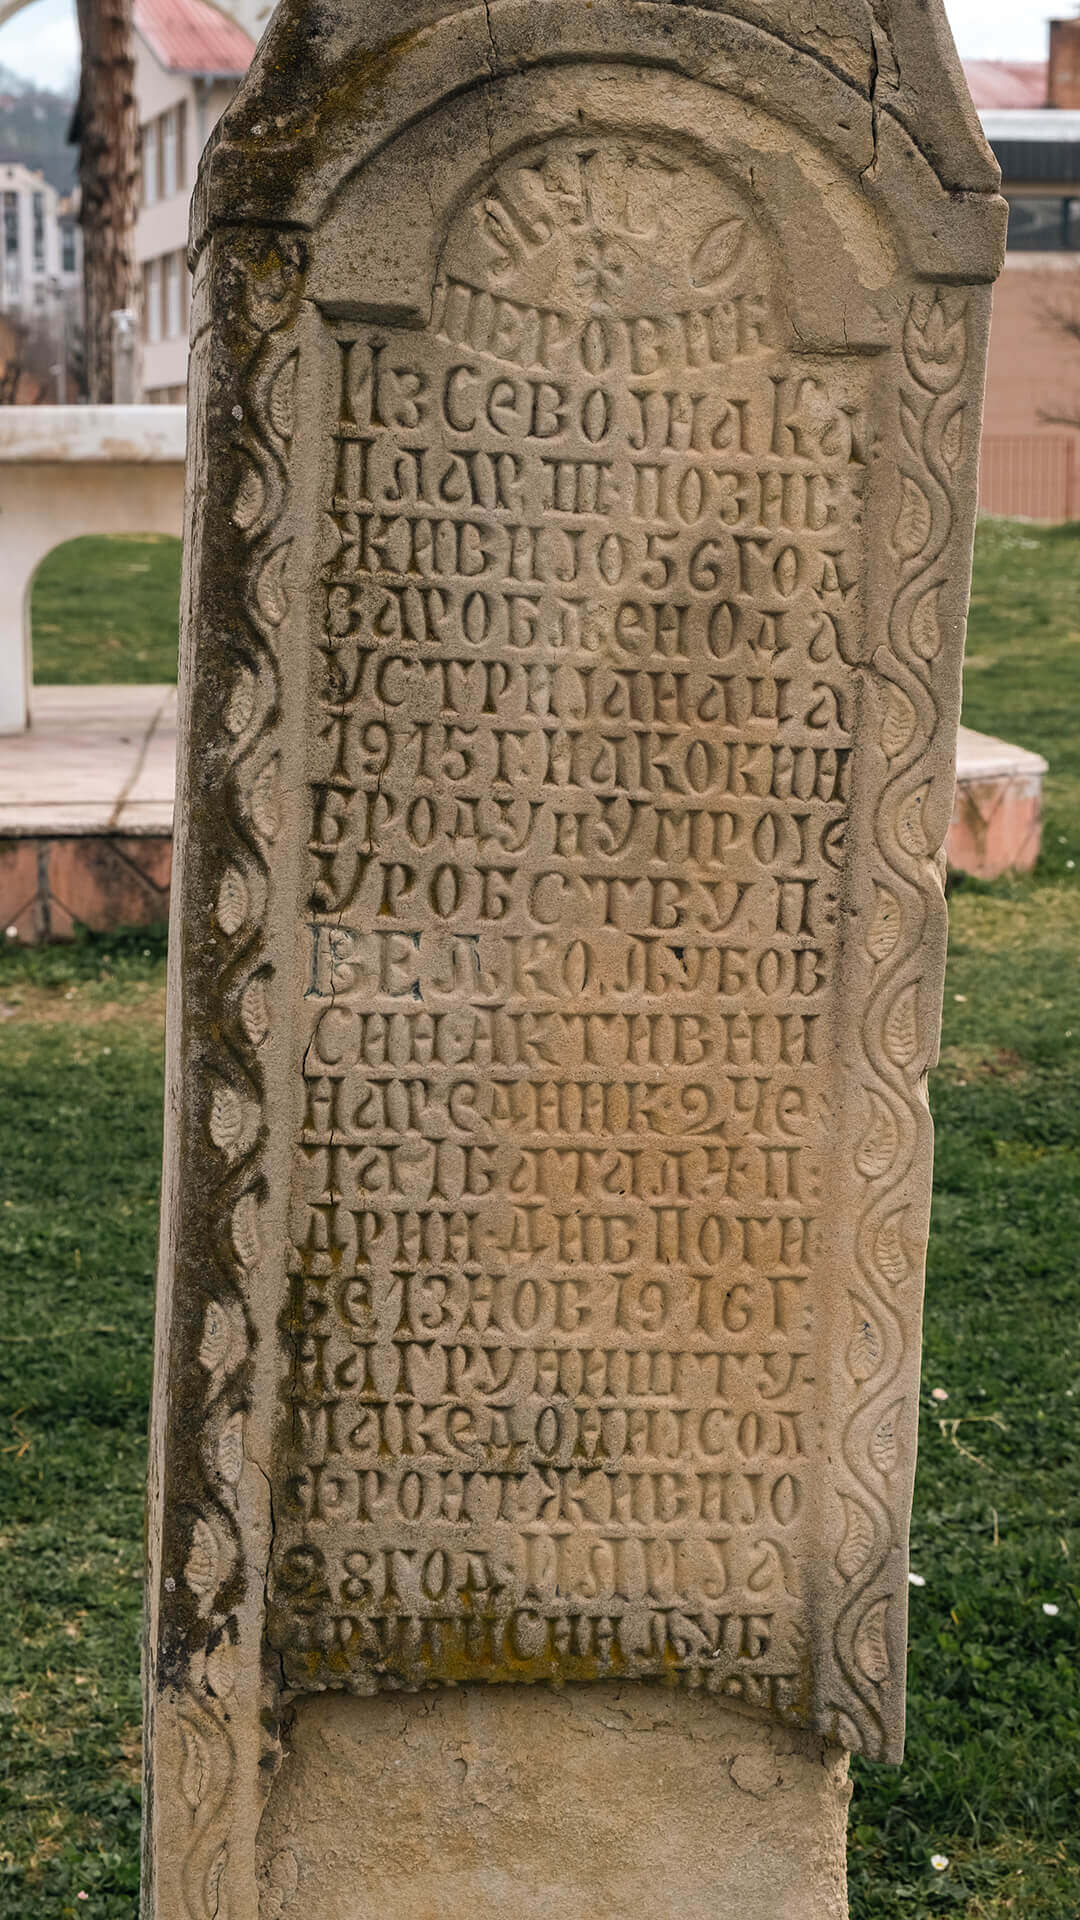 ПЕРОВИЋ
ИЗ СЕВОЈНА КА
ПЛАР. III ПОЗИВ.
ЖИВИЈО 56 ГОД
ЗАРОБЉЕН ОД А
УСТРИЈАНАЦА
1915 Г. НА КОКИН
БРОДУ И УМРО ЈЕ
У РОБСТВУ. П:
ВЕЉКО. ЉУБОВ
СИН. АКТИВНИ
НАРЕДНИК. 2 ЧЕ
ТА I БАТАЛ. Ж П:
ДРИН. ДИВ ПОГИ
БЕ 13 НОВ 1916 Г:
НА ГРУНИШТУ.
МАКЕДОНИЈ. СОЛ
ФРОНТ. ЖИВИЈО
28 ГОД. ИЛИЈА
ДРУГИ СИН ЉУБ